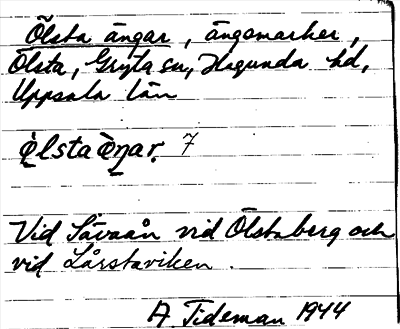 Ölsta ängar, ängsmarker,
Ölsta, Gryta sn, Hagunda hd,
Uppsala län
ö̀lstaä̀ŋar. 7
Vid Sävaån vid Ölstaberg och
vid Lårstaviken.
A. Tideman 1944